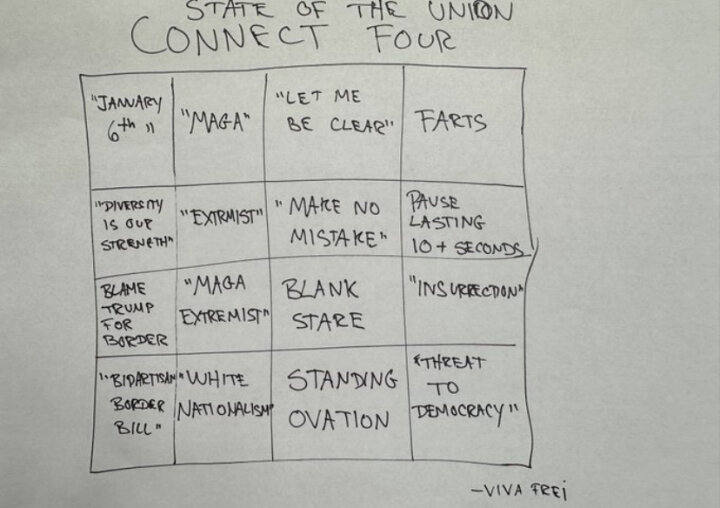 STATE OF THE UNION
CONNECT FOUR
"JANUARY
6th"
"MAGA"
"LET ME
BE CLEAR"
FARTS
"DIVERSITY
IS OUR
STRENGTH"
"EXTRMIST"
"MAKE NO
MISTAKE"
PAUSE
LASTING
10+ SECONDS
BLAME
TRUMP
FOR
BORDER
"MAGA
EXTREMIST"
BLANK
STARE
"INSURRECTION"
"BIPARTISAN
BORDER
BILL"
"WHITE
NATIONALISM"
STANDING
OVATION
"THREAT
TO
DEMOCRACY"
-VIVA FREi